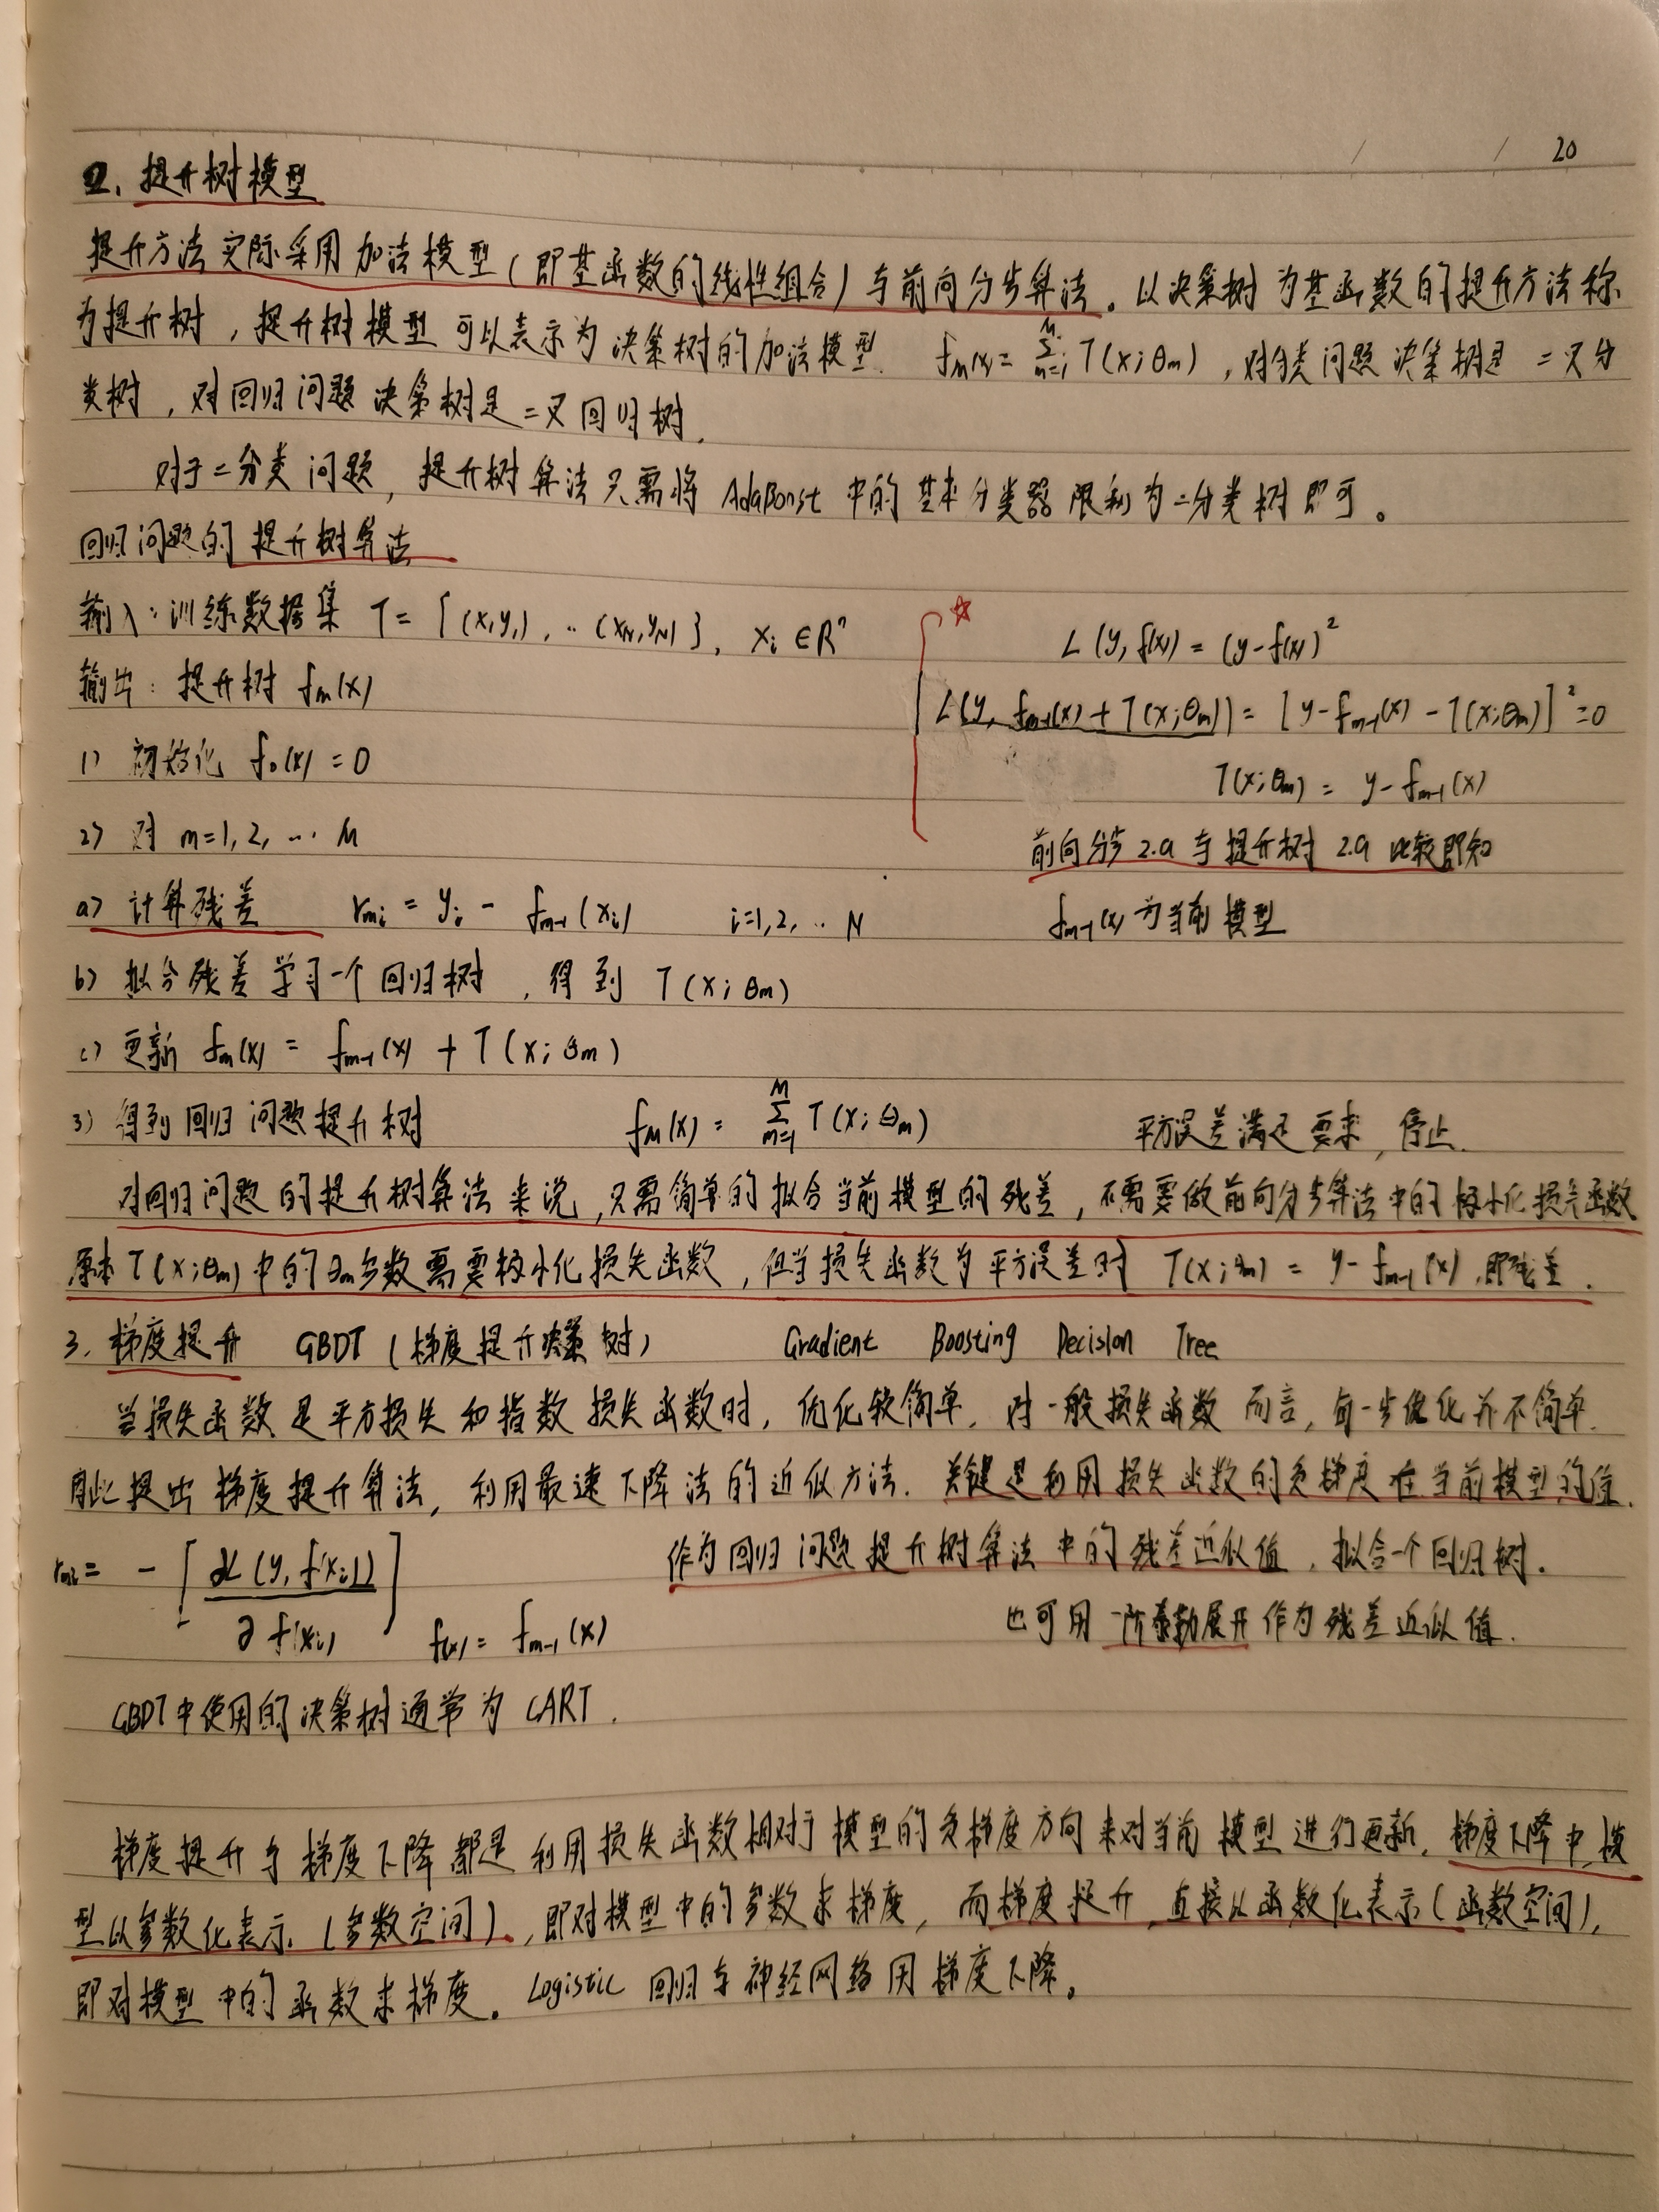 20
2. 提升树模型
提升方法实际采用加法模型(即基函数的线性组合)与前向分步算法。以决策树为基函数的提升方法称
为提升树,提升树模型可以表示为决策树的加法模型. fM(x)= Σ_{m=1}^{M} T(x;θm),对分类问题决策树是二叉分
类树,对回归问题决策树是二叉回归树.
对于二分类问题,提升树算法只需将 AdaBoost 中的基本分类器限制为二分类树即可。
回归问题的提升树算法
输入:训练数据集 T={(x1,y1), ..(xN,yN)}, xi∈R^n
L(y,f(x))=(y-f(x))²
输出:提升树 fm(x)
L(y, fm-1(x)+T(x;θm))=[y-fm-1(x)-T(x;θm)]²=0
1) 初始化 f0(x)=0
T(x;θm)= y-fm-1(x)
2) 对 m=1,2, … M
前向分步2.a与提升树2.a比较即知
a) 计算残差 rmi = yi - fm-1(xi) i=1,2, .. N
fm-1(x)为当前模型
b) 拟合残差学习一个回归树,得到 T(x;θm)
c) 更新 fm(x) = fm-1(x) + T(x;θm)
3) 得到回归问题提升树 fM(x) = Σ_{m=1}^{M} T(x;θm) 平方误差满足要求,停止.
对回归问题的提升树算法来说,只需简单的拟合当前模型的残差,不需要做前向分步算法中的极小化损失函数
原本T(x;θm)中的θm参数需要极小化损失函数,但当损失函数为平方误差时 T(x;θm) = y-fm-1(x),即残差.
3. 梯度提升 GBDT(梯度提升决策树) Gradient Boosting Decision Tree
当损失函数是平方损失和指数损失函数时,优化较简单,对一般损失函数而言,每一步优化并不简单.
因此提出梯度提升算法,利用最速下降法的近似方法.关键是利用损失函数的负梯度在当前模型的值.
rmi= -[∂L(y,f(xi))/∂f(xi)] f(x)=fm-1(x) 作为回归问题提升树算法中的残差近似值,拟合一个回归树.
也可用一阶泰勒展开作为残差近似值.
GBDT中使用的决策树通常为CART.
梯度提升与梯度下降都是利用损失函数相对于模型的负梯度方向来对当前模型进行更新.梯度下降中,模
型以参数化表示.(参数空间).,即对模型中的参数求梯度,而梯度提升,直接以函数化表示(函数空间),
即对模型中的函数求梯度。Logistic 回归与神经网络用梯度下降。